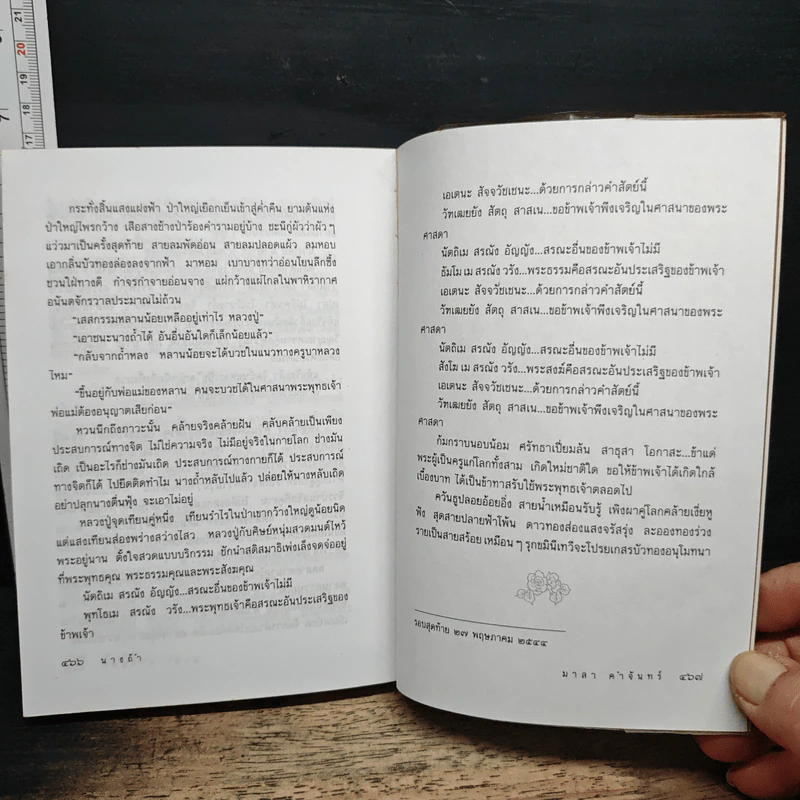 กระทั่งสิ้นแสงแฝงฟ้า ป่าใหญ่เยือกเย็นเข้าสู่ค่ำคืน ยามต้นแห่ง
ป่าใหญ่ไพรกว้าง เสือสางช้างป่าร้องคำรามอยู่บ้าง ชะนีกู่ผัวว่าผัวๆ
แว่วมาเป็นครั้งสุดท้าย สายลมพัดอ่อน สายลมปลอดแผ้ว ลมหอบ
เอากลิ่นบัวทองล่องลงจากฟ้า มาหอม เบาบางทว่าอ่อนโยนลึกซึ้ง
ชวนใฝ่ทางดี กำจรกำจายอ่อนจาง แผ่กว้างแผ่ไกลในพาหิรากาศ
อนันตจักรวาลประมาณไม่ถ้วน
“เสสกรรมหลานน้อยเหลืออยู่เท่าไร หลวงปู่”
“เอาชนะนางถ้ำได้ อันอื่นอันใดก็เล็กน้อยแล้ว”
“กลับจากถ้ำหลง หลานน้อยจะได้บวชในแนวทางครูบาหลวง
ไหม”
“ขึ้นอยู่กับพ่อแม่ของหลาน คนจะบวชได้ในศาสนาพระพุทธเจ้า
พ่อแม่ต้องอนุญาตเสียก่อน”
หวนนึกถึงภาวะนั้น คล้ายจริงคล้ายฝัน คลับคล้ายเป็นเพียง
ประสบการณ์ทางจิต ไม่ใช่ความจริง ไม่มีอยู่จริงในกายโลก ช่างมัน
เถิด เป็นอะไรก็ช่างมันเถิด ประสบการณ์ทางกายก็ได้ ประสบการณ์
ทางจิตก็ได้ ไปยึดติดทำไม นางถ้ำหลับไปแล้ว ปล่อยให้นางหลับเถิด
อย่าปลุกนางตื่นฟุ้ง จะเอาไม่อยู่
หลวงปู่จุดเทียนคู่หนึ่ง เทียนรำไรในป่าเขากว้างใหญ่ดูน้อยนิด
แต่แสงเทียนส่องพร่างสว่างไสว หลวงปู่กับศิษย์หนุ่มสวดมนต์ไหว้
พระอยู่นาน ตั้งใจสวดแบบบริกรรม ชักนำสติสมาธิเพ่งเล็งจดจ่ออยู่
ที่พระพุทธคุณ พระธรรมคุณและพระสังฆคุณ
นัตถิเม สรณัง อัญญัง...สรณะอื่นของข้าพเจ้าไม่มี
พุทโธเม สรณัง วรัง...พระพุทธเจ้าคือสรณะอันประเสริฐของ
ข้าพเจ้า
๔๖๖ นางถ้ำ
เอเตนะ สัจจวัชเชนะ...ด้วยการกล่าวคำสัตย์นี้
วัฑเฒยยัง สัตถุ สาสเน...ขอข้าพเจ้าพึงเจริญในศาสนาของพระ
ศาสดา
นัตถิเม สรณัง อัญญัง...สรณะอื่นของข้าพเจ้าไม่มี
ธัมโม เม สรณัง วรัง...พระธรรมคือสรณะอันประเสริฐของข้าพเจ้า
เอเตนะ สัจจวัชเชนะ...ด้วยการกล่าวคำสัตย์นี้
วัฑเฒยยัง สัตถุ สาสเน...ขอข้าพเจ้าพึงเจริญในศาสนาของพระ
ศาสดา
นัตถิเม สรณัง อัญญัง...สรณะอื่นของข้าพเจ้าไม่มี
สังโฆ เม สรณัง วรัง...พระสงฆ์คือสรณะอันประเสริฐของข้าพเจ้า
เอเตนะ สัจจวัชเชนะ...ด้วยการกล่าวคำสัตย์นี้
วัฑเฒยยัง สัตถุ สาสเน...ขอข้าพเจ้าพึงเจริญในศาสนาของพระ
ศาสดา
ก้มกราบนอบน้อม ศรัทธาเปี่ยมล้น สาธุสา โอกาสะ...ข้าแด่
พระผู้เป็นครูแก่โลกทั้งสาม เกิดใหม่ชาติใด ขอให้ข้าพเจ้าได้เกิดใกล้
เบื้องบาท ได้เป็นข้าทาสรับใช้พระพุทธเจ้าตลอดไป
ควันธูปลอยอ้อยอิ่ง สายน้ำเหมือนรับรู้ เพิงผาคู่โลกคล้ายเงี่ยหู
ฟัง สุดสายปลายฟ้าโพ้น ดาวทองส่องแสงจรัสรุ่ง ละอองทองร่วง
รายเป็นสายสร้อย เหมือนๆ รุกขมินีเทวีจะโปรยเกสรบัวทองอนุโมทนา
รอบสุดท้าย ๒๗ พฤษภาคม ๒๕๔๔
มาลา คำจันทร์ ๔๖๗
21
20
19
18
17
7